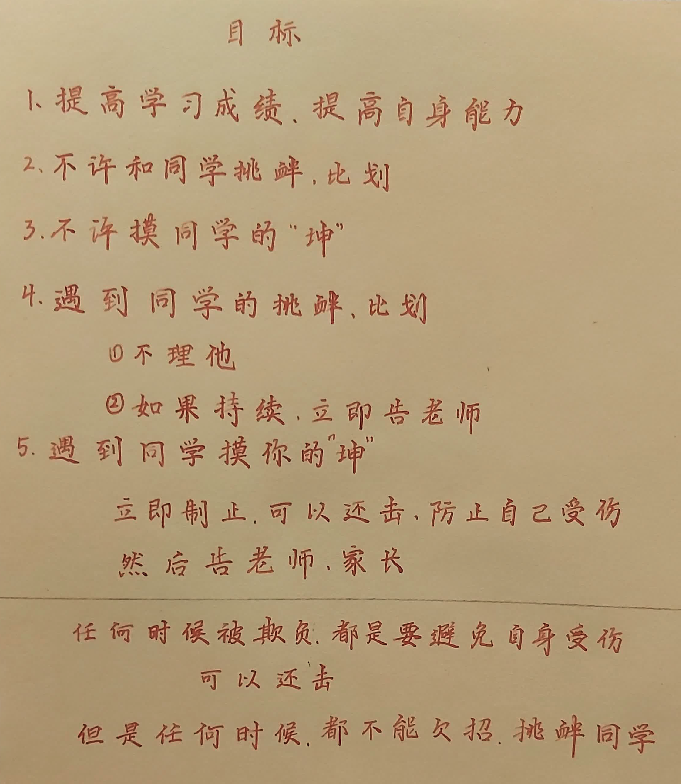 目标
1、提高学习成绩、提高自身能力
2、不许和同学挑衅、比划
3.不许摸同学的"坤"
4.遇到同学的挑衅、比划
①不理他
②如果持续、立即告老师
5.遇到同学摸你的"坤"
立即制止、可以还击、防止自己受伤
然后告老师、家长
任何时候被欺负、都是要避免自身受伤
可以还击
但是任何时候、都不能欠招、挑衅同学